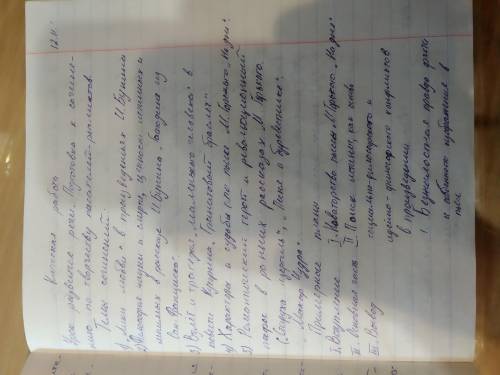 12.11.
Классная работа
Урок развития речи. Подготовка к сочине-
нию по творчеству писателей-реалистов.
Темы сочинений:
1) Лики любви в произведениях И. Бунина
2) Философия жизни и смерти, ценности истинных и
мнимых в рассказе И. Бунина "Господин из
Сан-Франциско".
3) Взлёт и трагедия "маленького человека" в
повести Куприна "Гранатовый браслет"
4) Характеры и судьбы по пьесе М. Горького "На дне".
5) Романтический герой и революционный
пафос в ранних рассказах М. Горького
(Старуха Изергиль", "Песня о буревестнике",
"Макар Чудра"
Примерные планы
I. Вступление
II. Основная часть
III. Вывод
I. Новаторство пьесы М. Горького "На дне"
II Поиск истины, как основа
социально-философского и
идейно-философского конфликтов
в произведении
1. Безжалостная правда факта
и событного изображения в
пьесе